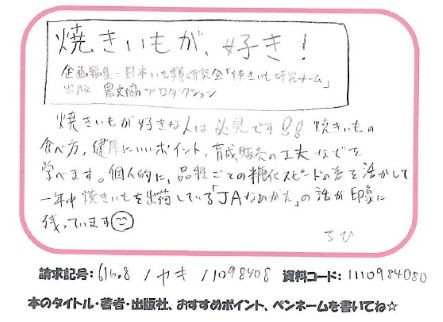 焼きいもが、好き！
企画編集・日本いも類研究会「焼きいも研究チーム」
出版 農文協プロダクション
焼きいもが好きな人は必見です!! 焼きいもの
食べ方、健康にいいポイント、育成販売の工夫などを
学べます。個人的に、品種ごとの糖化スピードの差を活かして
一年中焼きいもを出荷している「JAなめがた」の話が印象に
残っています☺
ちひ
請求記号:616.8 / ヤキ / 1098408 資料コード:1110984080
本のタイトル・著者・出版社、おすすめポイント、ペンネームを書いてね☆